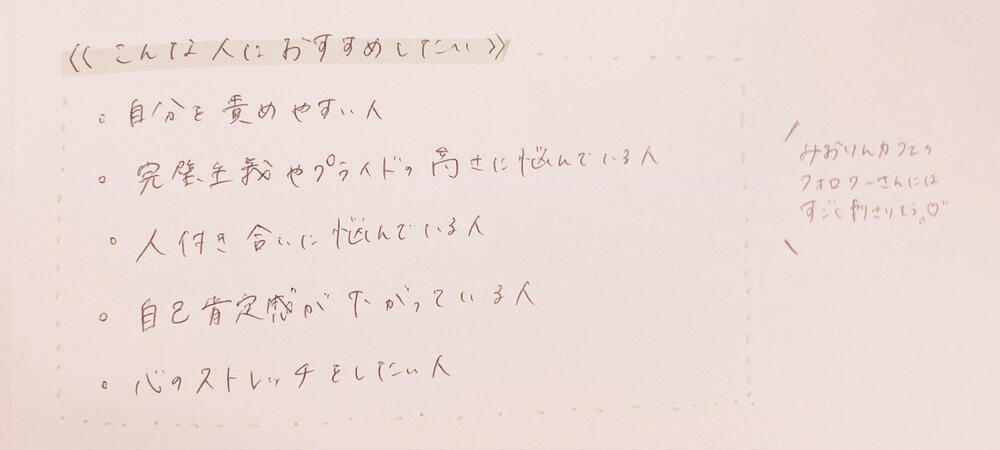 《こんな人におすすめしたい》
○ 自分を責めやすい人
○ 完璧主義やプライドの高さに悩んでいる人
○ 人付き合いに悩んでいる人
○ 自己肯定感が下がっている人
○ 心のストレッチをしたい人
みおりんカフェの
フォロワーさんには
すごく刺さりそう♡